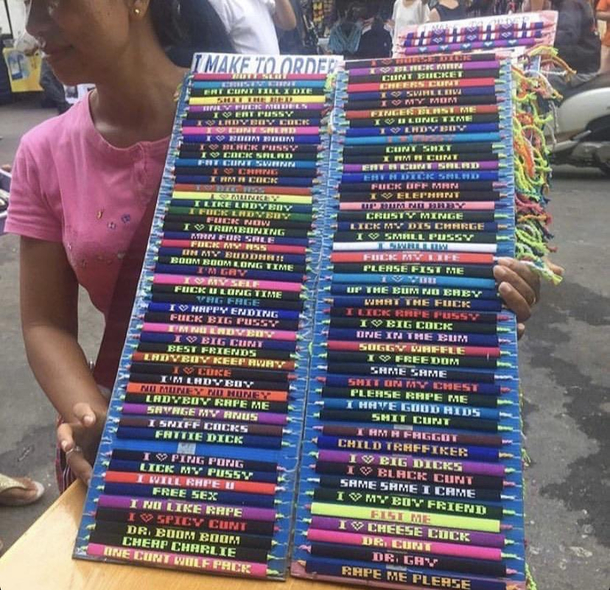 I MAKE TO ORDER
BUTT SLUT
CRUSTY CUNT
EAT CUNT TILL I DIE
SHIT THE BED
ONLY FUCK MODELS
I ♡ EAT PUSSY
I ♡ LADYBOY COCK
I ♡ CUNT SALAD
I ♡ BOOM BOOM
I ♡ BLACK PUSSY
I ♡ COCK SALAD
EAT CUNT
I ♡ CHANG
I AM A COCK
I ♡ BIG ASS
I ♡ MONKEY
I LIKE LADYBOY
I FUCK LADYBOY
FUCK NOW
I ♡ TROMBONING
MAN FOR SALE
FUCK MY ASS
OH MY BUDDHA!!
BOOM BOOM LONG TIME
I'M GAY
I ♡ MY SELF
FUCK U LONG TIME
VAG FACE
I ♡ HAPPY ENDING
FUCK BIG PUSSY
I'M NO LADYBOY
I ♡ BIG CUNT
BEST FRIENDS
LADYBOY KEEP AWAY
I ♡ COKE
I'M LADYBOY
NO MONEY NO HONEY
LADYBOY RAPE ME
SAVAGE MY ANUS
I SNIFF COCKS
FATTIE DICK
I ♡ PING PONG
LICK MY PUSSY
I WILL RAPE U
FREE SEX
I NO LIKE RAPE
I ♡ SPICY CUNT
DR: BOOM BOOM
CHEAP CHARLIE
ONE CUNT WOLF PACK
I ♡ HORSE DICK
I ♡ BLACK MAN
CUNT BUCKET
CHEERS CUNT
I ♡ SWALLOW
I ♡ MY MOM
FINGER BLAST ME
I ♡ U LONG TIME
I ♡ LADYBOY
CUNT SHIT
I AM A CUNT
EAT A CUNT SALAD
EAT A DICK SALAD
FUCK OFF MAN
I ♡ ELEPHANT
UP BUM NO BABY
CRUSTY MINGE
LICK MY DIS CHARGE
I ♡ SMALL PUSSY
I SWALLOW
FUCK MY LIFE
PLEASE FIST ME
I ♡ YOU
UP THE BUM NO BABY
WHAT THE FUCK
I LICK RAPE PUSSY
I ♡ BIG COCK
ONE IN THE BUM
SOGGY WAFFLE
I ♡ FREEDOM
SAME SAME
SHIT ON MY CHEST
PLEASE RAPE ME
I HAVE GOOD AIDS
SHIT CUNT
I AM A FAGGOT
CHILD TRAFFIKER
I ♡ BIG DICKS
I ♡ BLACK CUNT
SAME SAME I CAME
I ♡ MY BOY FRIEND
FIST ME
I ♡ CHEESE COCK
DR: CUNT
DR: GAY
RAPE ME PLEASE